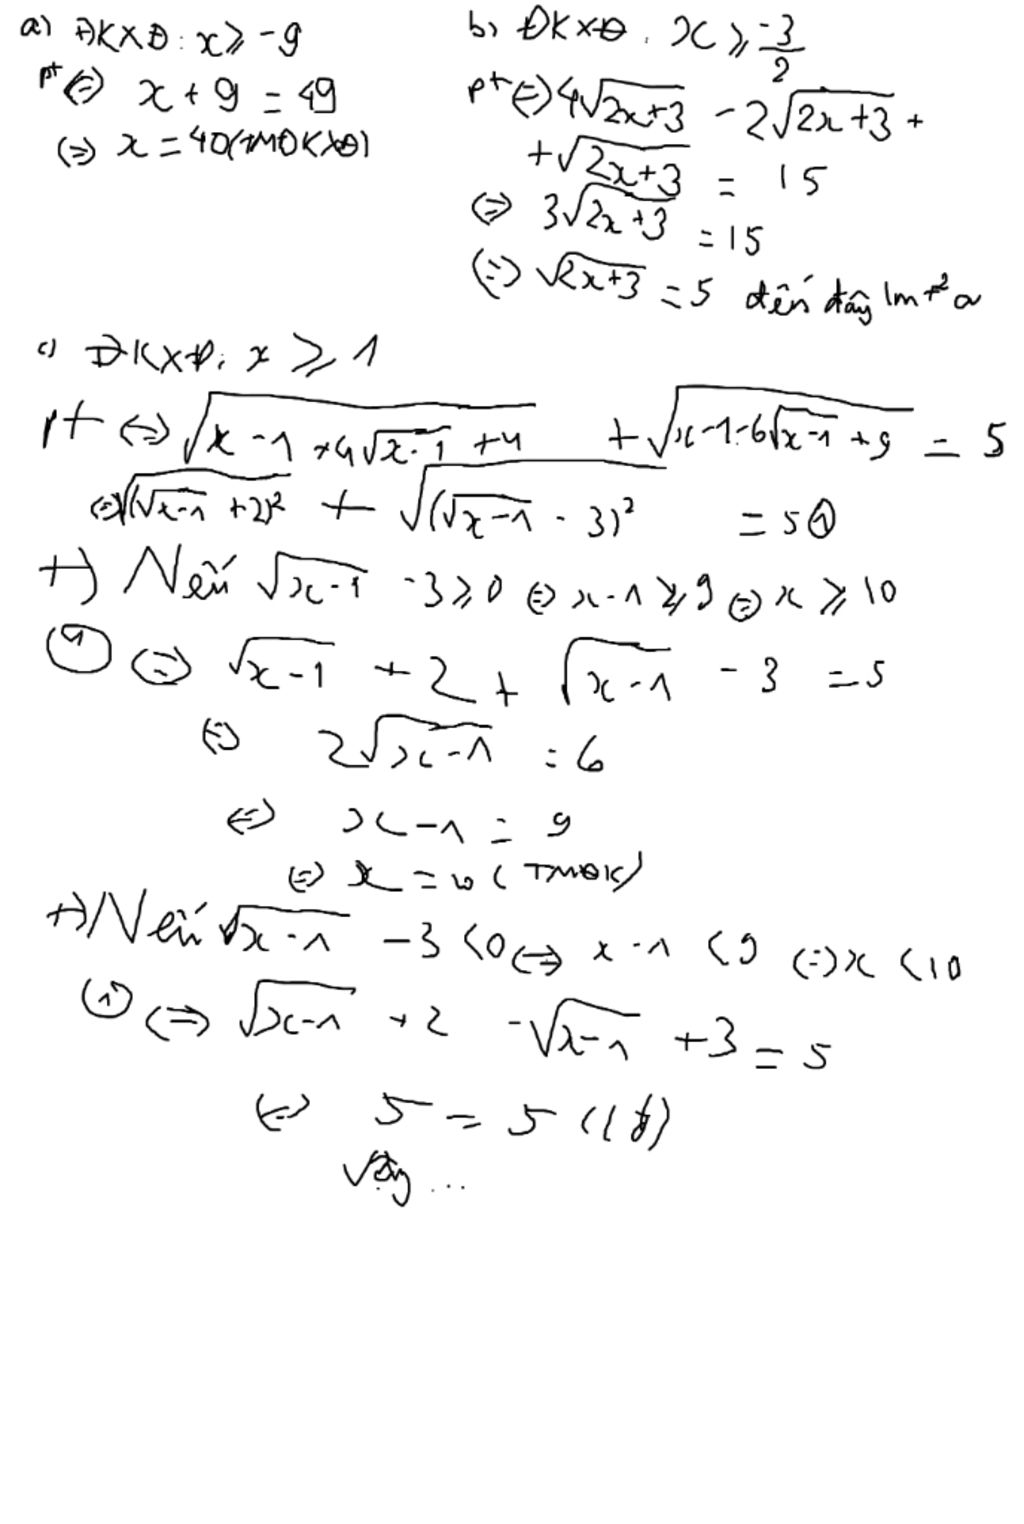 a) ĐKXĐ: x ≥ -9
pt ⇔ x + 9 = 49
⇔ x = 40 (TMĐKXĐ)
b, ĐKXĐ: x ≥ -3/2
pt ⇔ 4√(2x+3) - 2√(2x+3) +
+ √(2x+3) = 15
⇔ 3√(2x+3) = 15
⇔ √(2x+3) = 5 đến đây lm t² a
c) ĐKXĐ: x ≥ 1
pt ⇔ √(x-1+4√(x-1)+4) + √(x-1-6√(x-1)+9) = 5
⇔ √((√(x-1)+2)²) + √((√(x-1)-3)²) = 5 ①
+) Nếu √(x-1) - 3 ≥ 0 ⇔ x-1 ≥ 9 ⇔ x ≥ 10
① ⇔ √(x-1) + 2 + √(x-1) - 3 = 5
⇔ 2√(x-1) = 6
⇔ x - 1 = 9
⇔ x = 10 (TMĐK)
+) Nếu √(x-1) - 3 < 0 ⇔ x - 1 < 9 ⇔ x < 10
① ⇔ √(x-1) + 2 - √(x-1) + 3 = 5
⇔ 5 = 5 (lđ)
Vậy ...